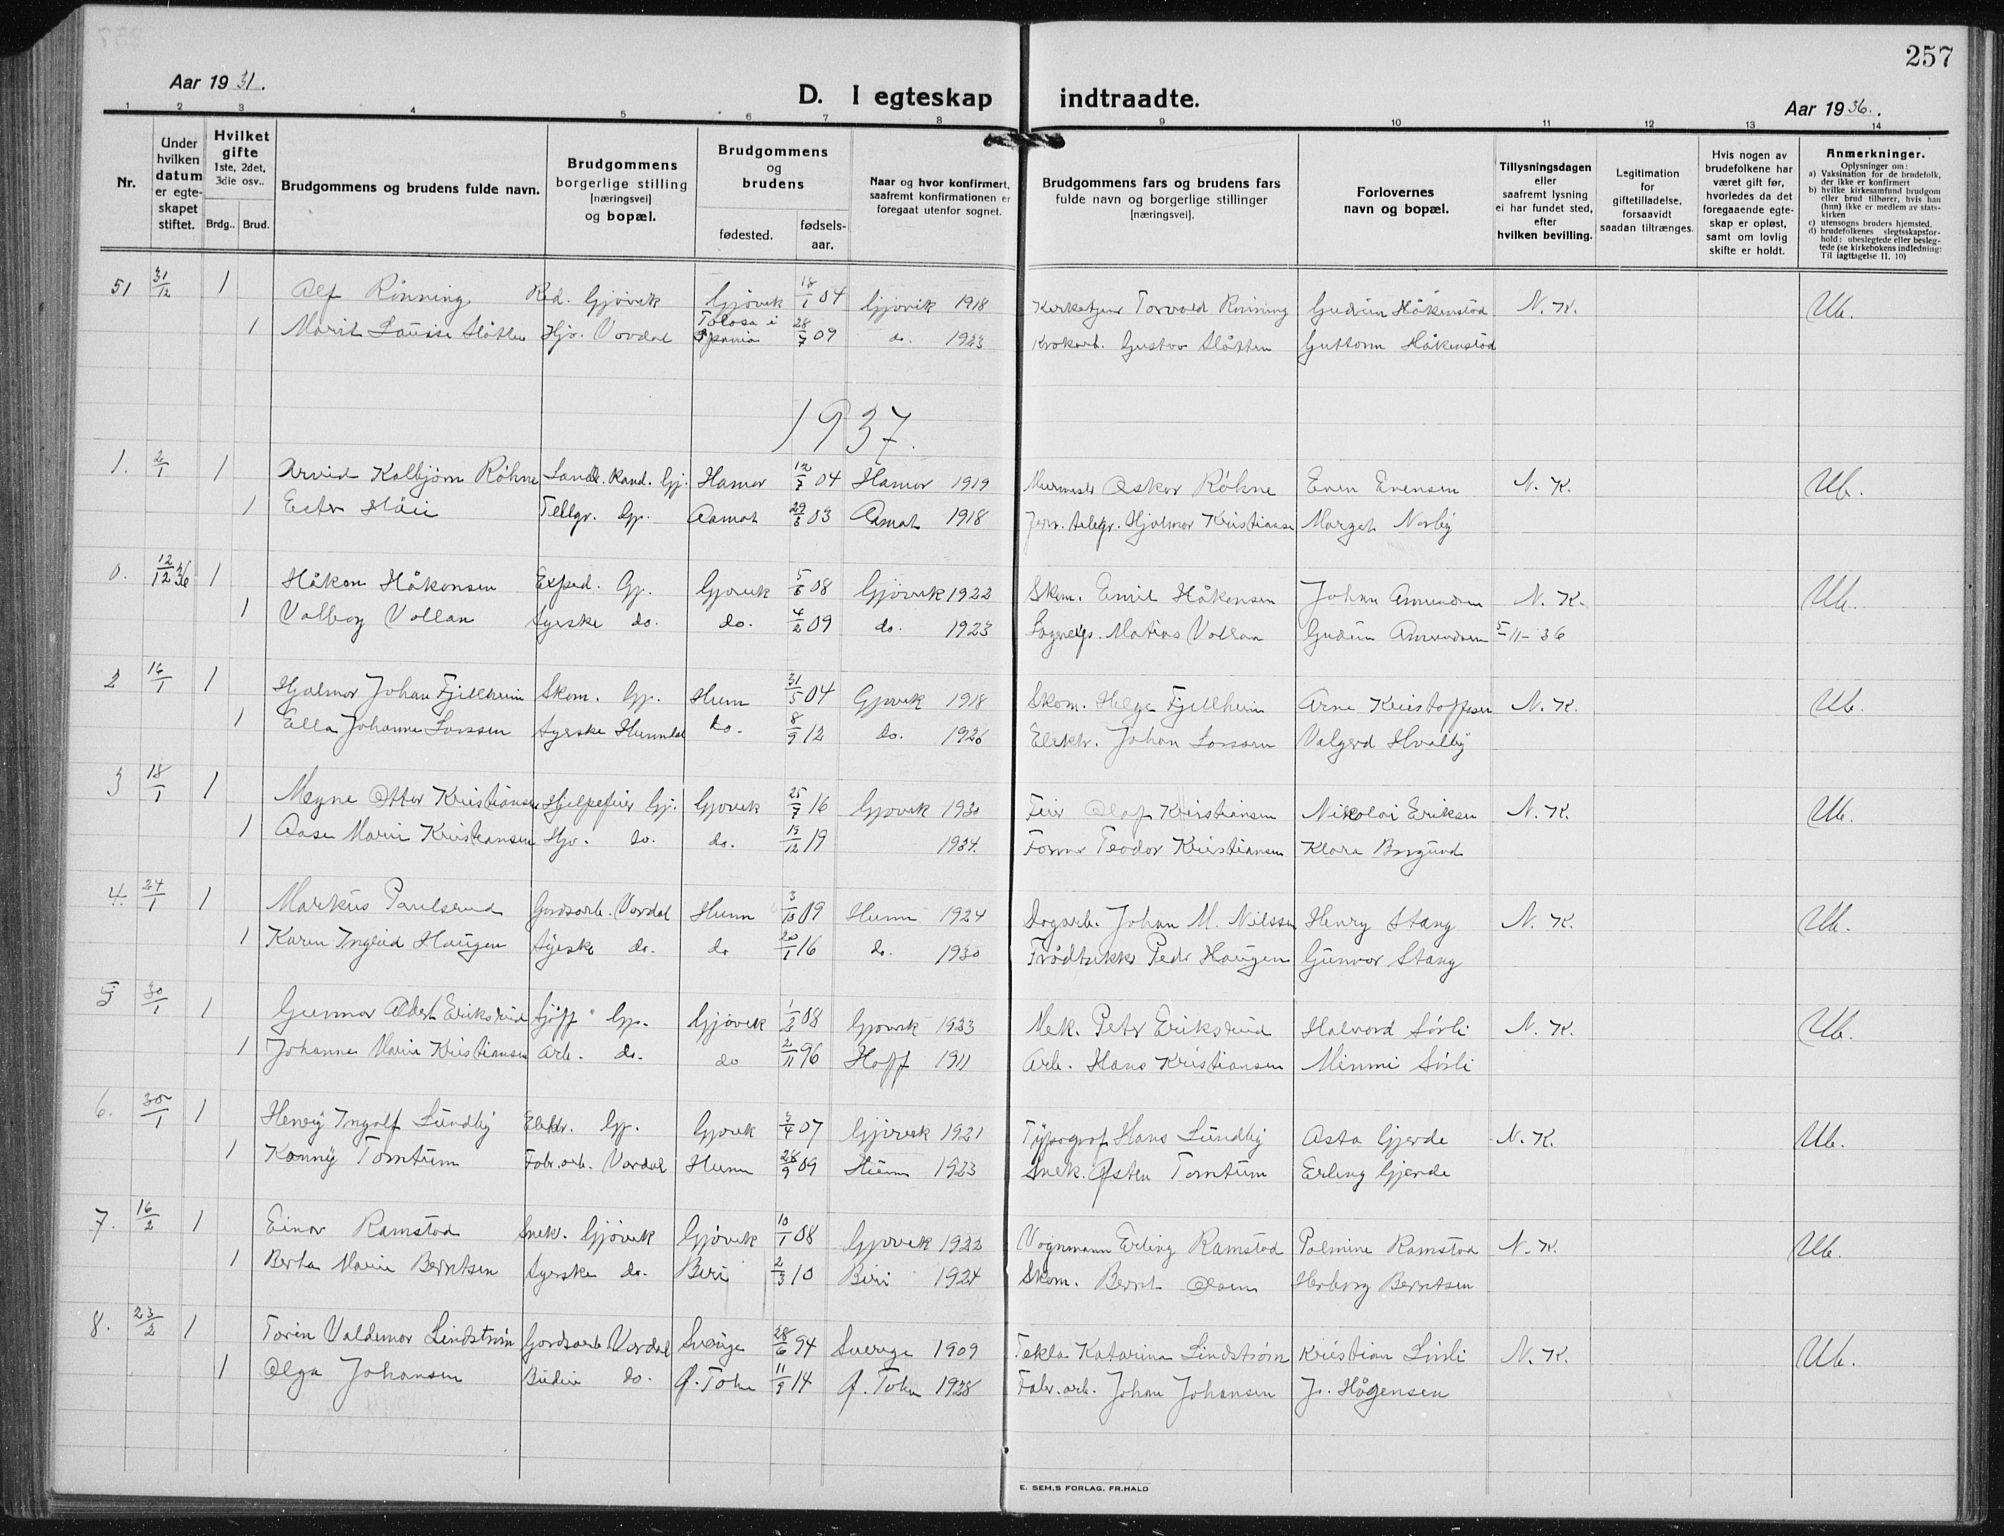 257
Aar 1931.
D. I egteskap indtraadte.
Aar 1936.
1 2 3 4 5 6 7 8 9 10 11 12 13 14
Nr.
Under hvilken datum er egteskapet stiftet.
Hvilket gifte 1ste, 2det, 3die osv..
Brdg.. Brud.
Brudgommens og brudens fulde navn.
Brudgommens borgerlige stilling [næringsvei] og bopæl.
Brudgommens og brudens
fødested.
fødselsaar.
Naar og hvor konfirmert, saafremt konfirmationen er foregaat utenfor sognet.
Brudgommens fars og brudens fars fulde navn og borgerlige stillinger [næringsvei].
Forlovernes navn og bopæl.
Tillysningsdagen eller saafremt lysning ei har fundet sted, efter hvilken bevilling.
Legitimation for giftetilladelse, forsaavidt saadan tiltrænges.
Hvis nogen av brudefolkene har været gift før, hvorledes da det foregaaende egteskap er opløst, samt om lovlig skifte er holdt.
Anmerkninger.
Oplysninger om:
a) Vaksination for de brudefolk, der ikke er konfirmert
b) hvilke kirkesamfund brudgom eller brud tilhører, hvis han (hun) ikke er medlem av statskirken
c) utensogns bruders hjemsted.
d) brudefolkenes slegtsskapsforhold: ubeslegtede eller beslegtede (se kirkebokens indledning: Til iagttagelse II. 10)
51 31/12 1 Alf Rönning Red. Gjövik Gjövik 18/1 04 Gjövik 1918 Kirketjener Torvald Rönning Gudrun Håkenstad N. K. Ub.
1 Marit Louise Slåtten Hjv. Vardal Tolosa i Spania 28/7 09 do. 1923 Krokarb. Gustav Slåtten Guttorm Håkenstad
1937.
1. 2/1 1 Arvid Kolbjørn Røhne Landbr. Kand. Gj. Hamar 12/7 04 Hamar 1919 Murmester Oskar Røhne Even Evensen N. K. Ub.
1 Ester Høii Tellgr. Gj. Aamot 29/3 03 Aamot 1918 Jern. telegr. Hjalmar Kristiansen Margot Norby
0. 12/12 36 1 Håkon Håkonsen Exped. Gj. Gjøvik 5/6 08 Gjøvik 1922 Skom. Emil Håkonsen Johan Amundsen N. K. Ub.
1 Valborg Vollan Syerske do. do. 4/2 09 do. 1923 Matias Vollan Gudrun Amundsen 5-11-36
2 16/1 1 Hjalmar Johan Fjellheim Skom. Gj. Hunn 31/5 04 Gjøvik 1918 Skom. Helge Fjellheim Arne Kristoffersen N. K. Ub.
1 Ella Johanne Larssen Syerske Hunndal do. 8/9 12 do. 1926 Elektr. Johan Larssen Valgerd Hvalby
3 18/1 1 Magne Otter Kristiansen Hjelpefeier Gj. Gjøvik 25/7 16 Gjøvik 1930 Feier Olaf Kristiansen Nikolai Eriksen N. K. Ub.
1 Aase Marie Kristiansen Hjv. do. do. 19/12 19 1934. Former Teodor Kristiansen Klara Berglund
4. 24/1 1 Markus Paulsrud Gardsarb. Vardal Hunn 3/10 09 Hunn 1924 Dagarb. Johan M. Nilssen Henry Stang N. K. Ub.
1 Karen Ingrid Haugen Syerske do. do 20/1 16 do. 1930 Trådtrekker Peder Haugen Gunvor Stang
5 30/1 1 Gunnar Albert Eriksrud Sjåff. Gj. Gjøvik 1/2 08 Gjøvik 1923 Mek. Peter Eriksrud Halvard Sørli N. K. Ub.
1 Johanne Marie Kristiansen Arb. do. do 2/11 96 Hoff 1911 Arb. Hans Kristiansen Mimmi Sørli
6. 30/1 1 Henry Ingolf Lundby Elektr. Gj. Gjøvik 3/4 07 Gjøvik 1921 Typograf Hans Lundby Asta Gjerde N. K. Ub.
1 Konny Tomtum Fabr. arb. Vardal Hunn 28/9 09 Hunn 1923 Snek. Østen Tomtum Erling Gjerde
7. 16/2 1 Einar Ramstad Snek. Gjøvik Gjøvik 10/1 08 Gjøvik 1922 Vognmann Erling Ramstad Palmine Ramstad N. K. Ub.
1 Berta Marie Berntsen Syerske do. Biri 2/3 10 Biri 1924 Skom. Bernt Olsen Herborg Berntsen
8. 23/2 1 Torin Valdemar Lindstrøm Gardsarb. Vardal Sverige 28/6 94 Sverige 1909 Tekla Katarina Lindstrøm Kristian Linli N. K. Ub.
1 Olga Johansen Budeie do. Ø. Toten 11/9 14 Ø. Toten 1928 Fabr. arb. Johan Johansen Jo. Hågensen
E. SEM.S FORLAG, FR.HALD